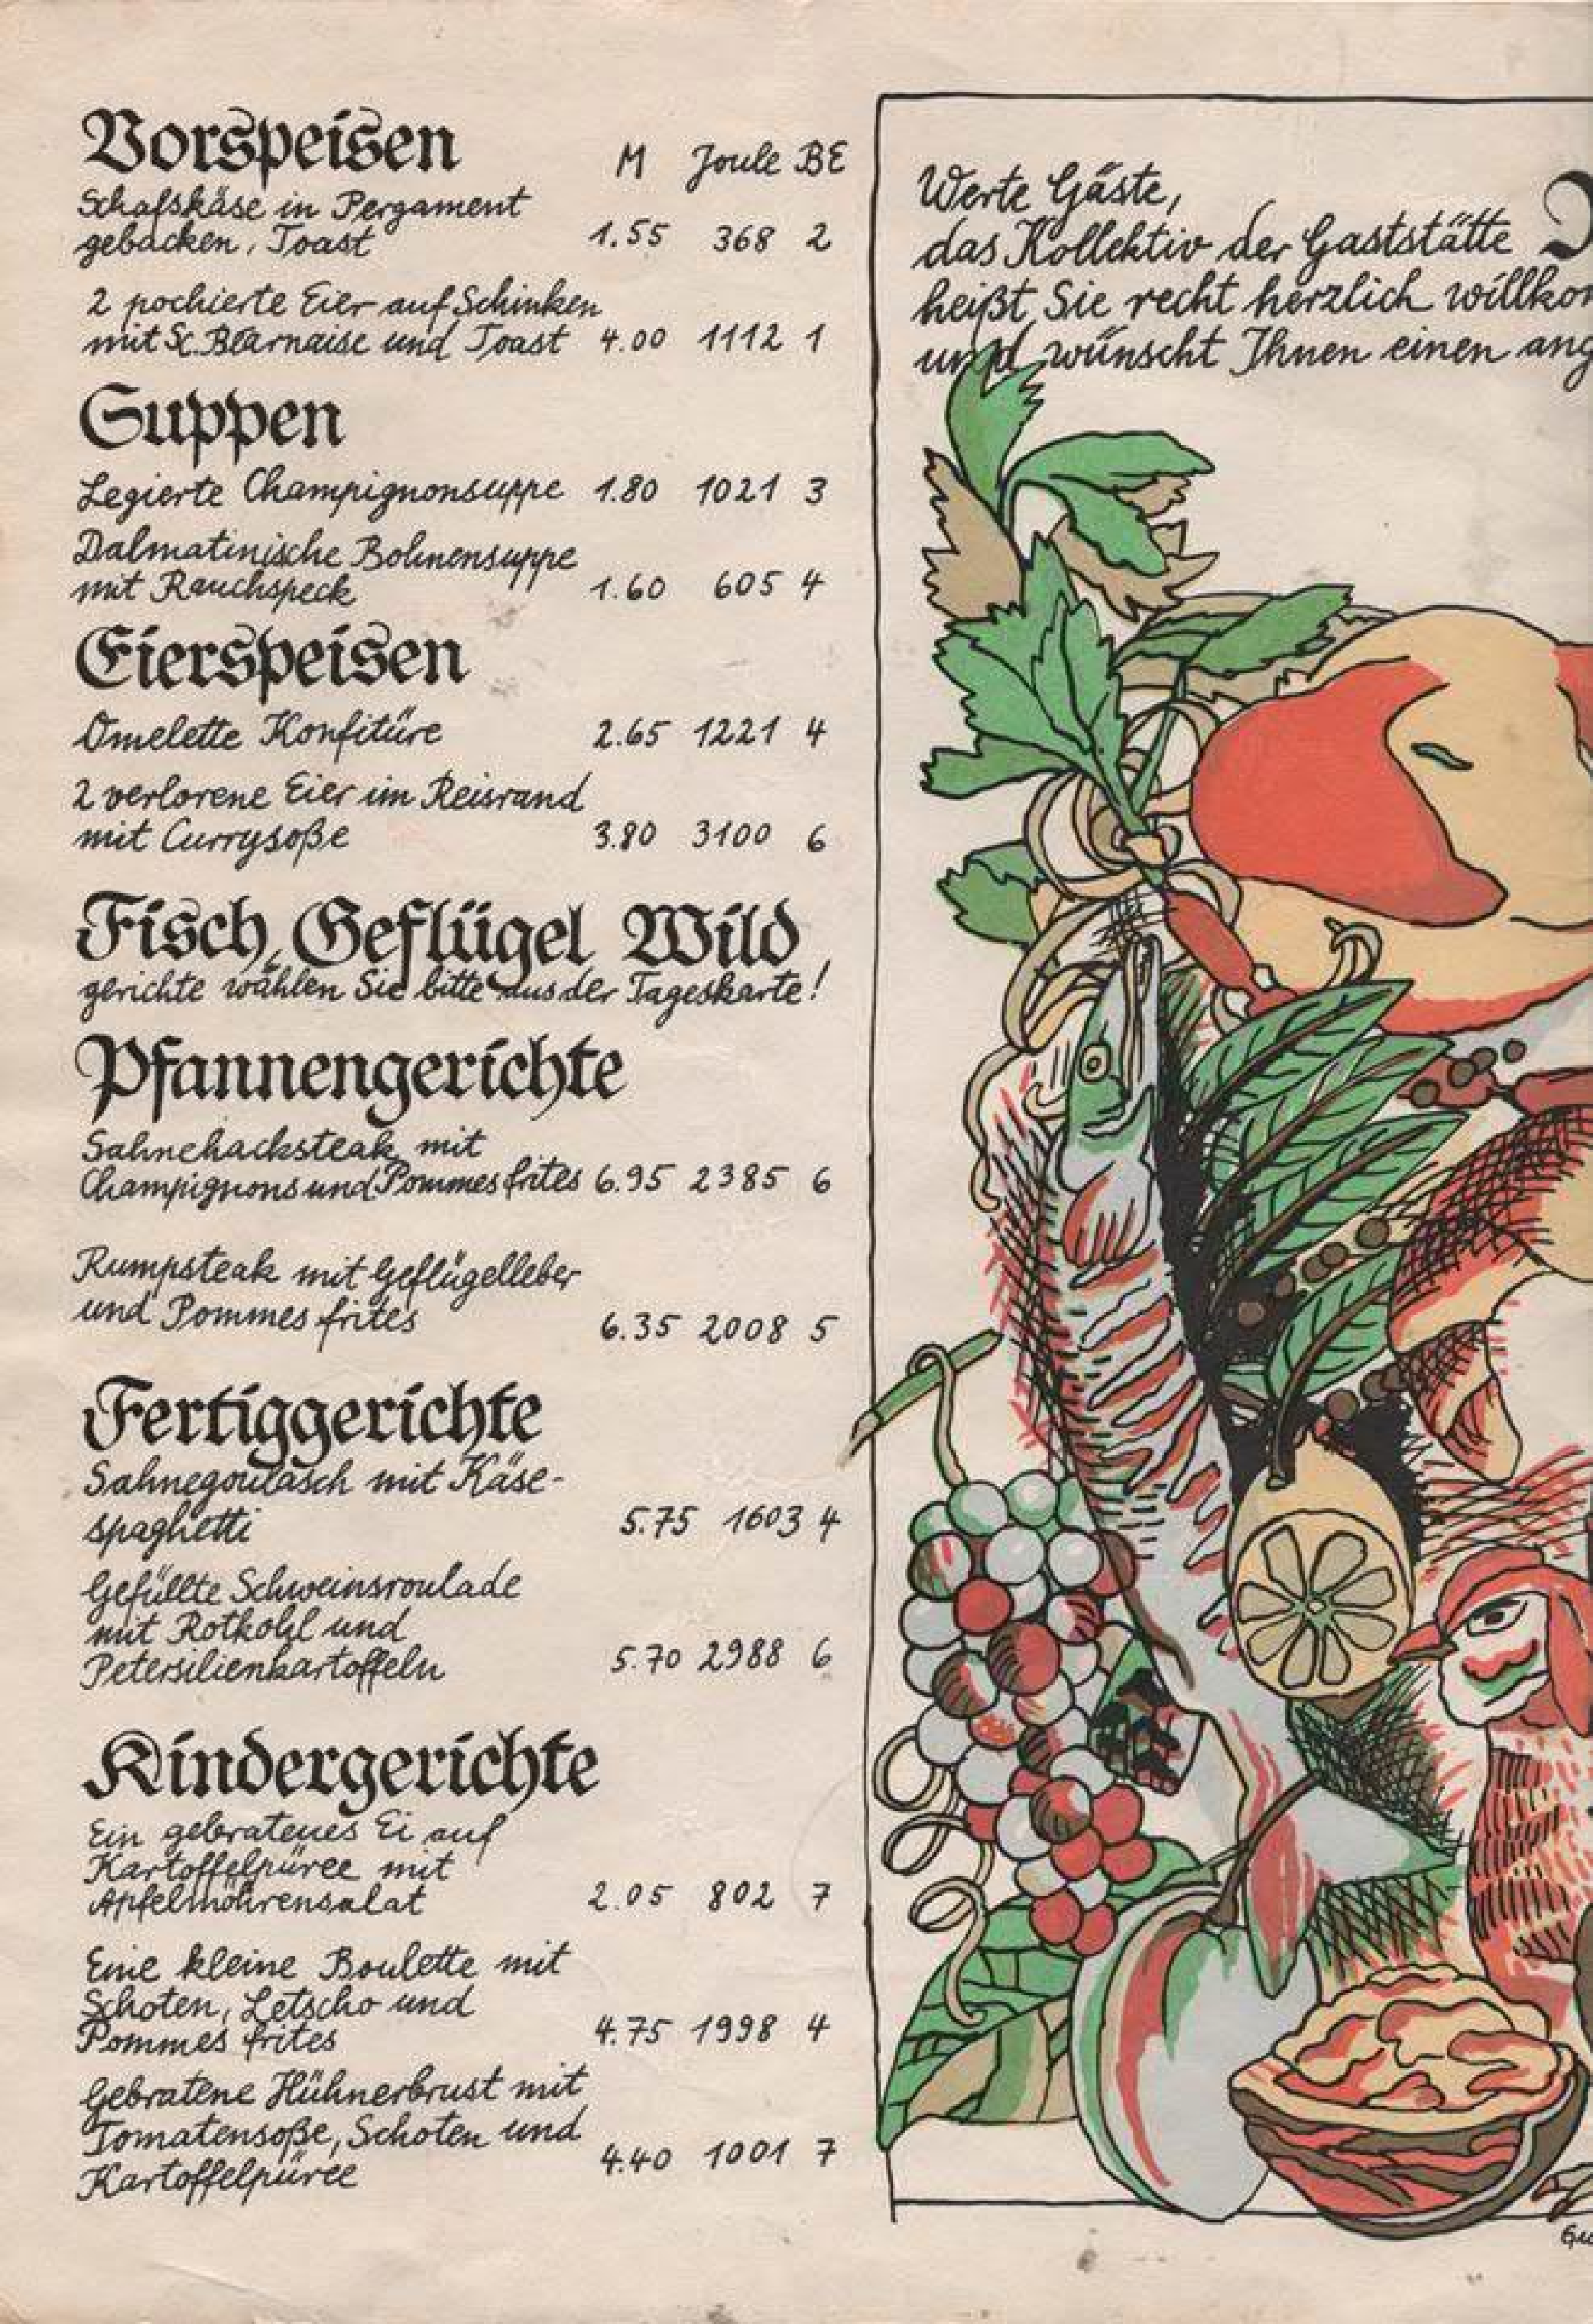 Vorspeisen M Joule BE
Schafskäse in Pergament
gebacken, Toast 1.55 368 2
2 pochierte Eier auf Schinken
mit Sc. Béarnaise und Toast 4.00 1112 1
Suppen
Legierte Champignonsuppe 1.80 1021 3
Dalmatinische Bohnensuppe
mit Rauchspeck 1.60 605 4
Eierspeisen
Omelette Konfitüre 2.65 1221 4
2 verlorene Eier im Reisrand
mit Currysoße 3.80 3100 6
Fisch, Geflügel Wild
gerichte wählen Sie bitte aus der Tageskarte!
Pfannengerichte
Sahnehacksteak mit
Champignons und Pommes frites 6.95 2385 6
Rumpsteak mit Geflügelleber
und Pommes frites 6.35 2008 5
Fertiggerichte
Sahnegoulasch mit Käse-
spaghetti 5.75 1603 4
Gefüllte Schweinsroulade
mit Rotkohl und
Petersilienkartoffeln 5.70 2988 6
Kindergerichte
Ein gebratenes Ei auf
Kartoffelpüree mit
Apfelmöhrensalat 2.05 802 7
Eine kleine Boulette mit
Schoten, Letscho und
Pommes frites 4.75 1998 4
Gebratene Hühnerbrust mit
Tomatensoße, Schoten und
Kartoffelpüree 4.40 1001 7
Werte Gäste,
das Kollektiv der Gaststätte
heißt Sie recht herzlich willko
und wünscht Ihnen einen ang